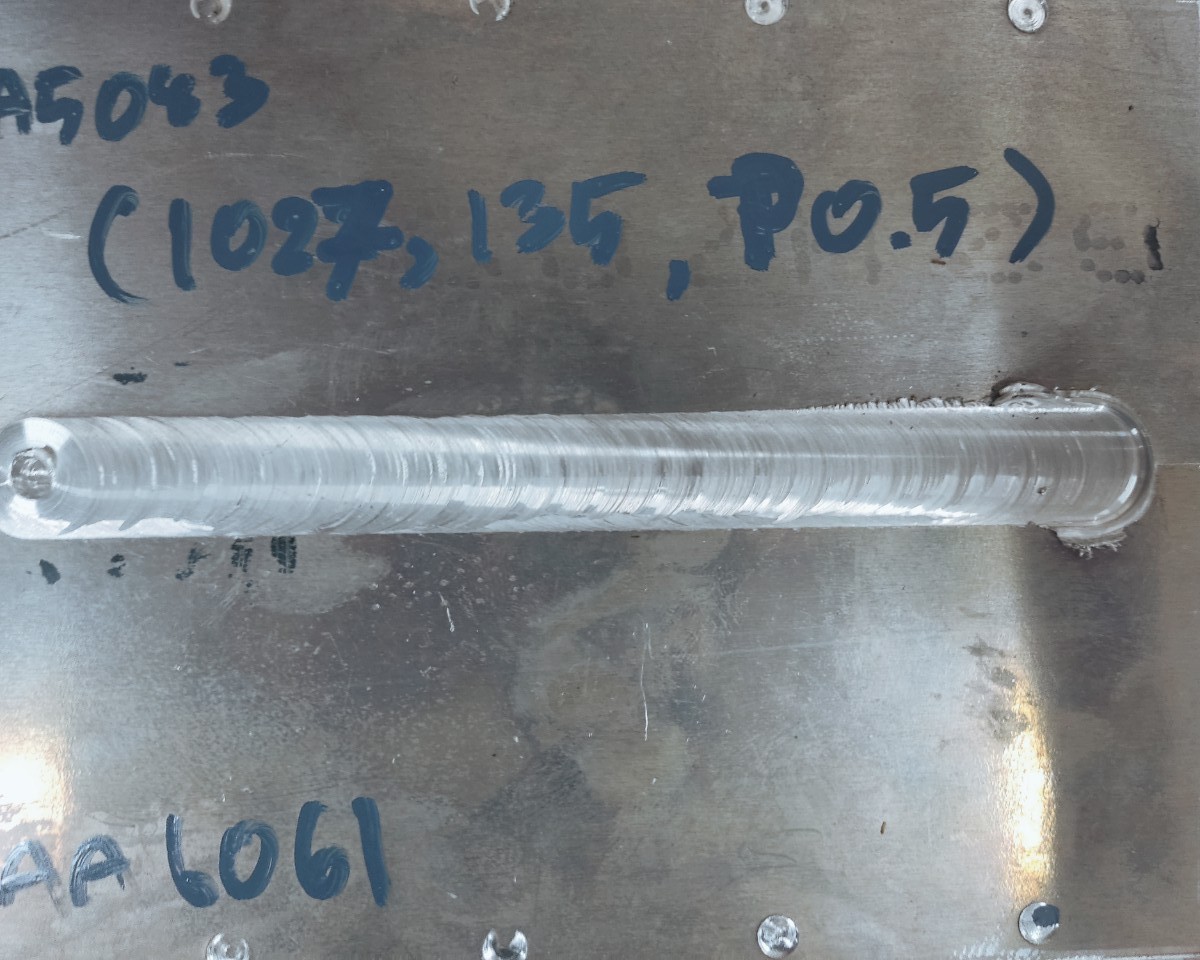 A5043
(1027, 135, P0.5)
AA6061